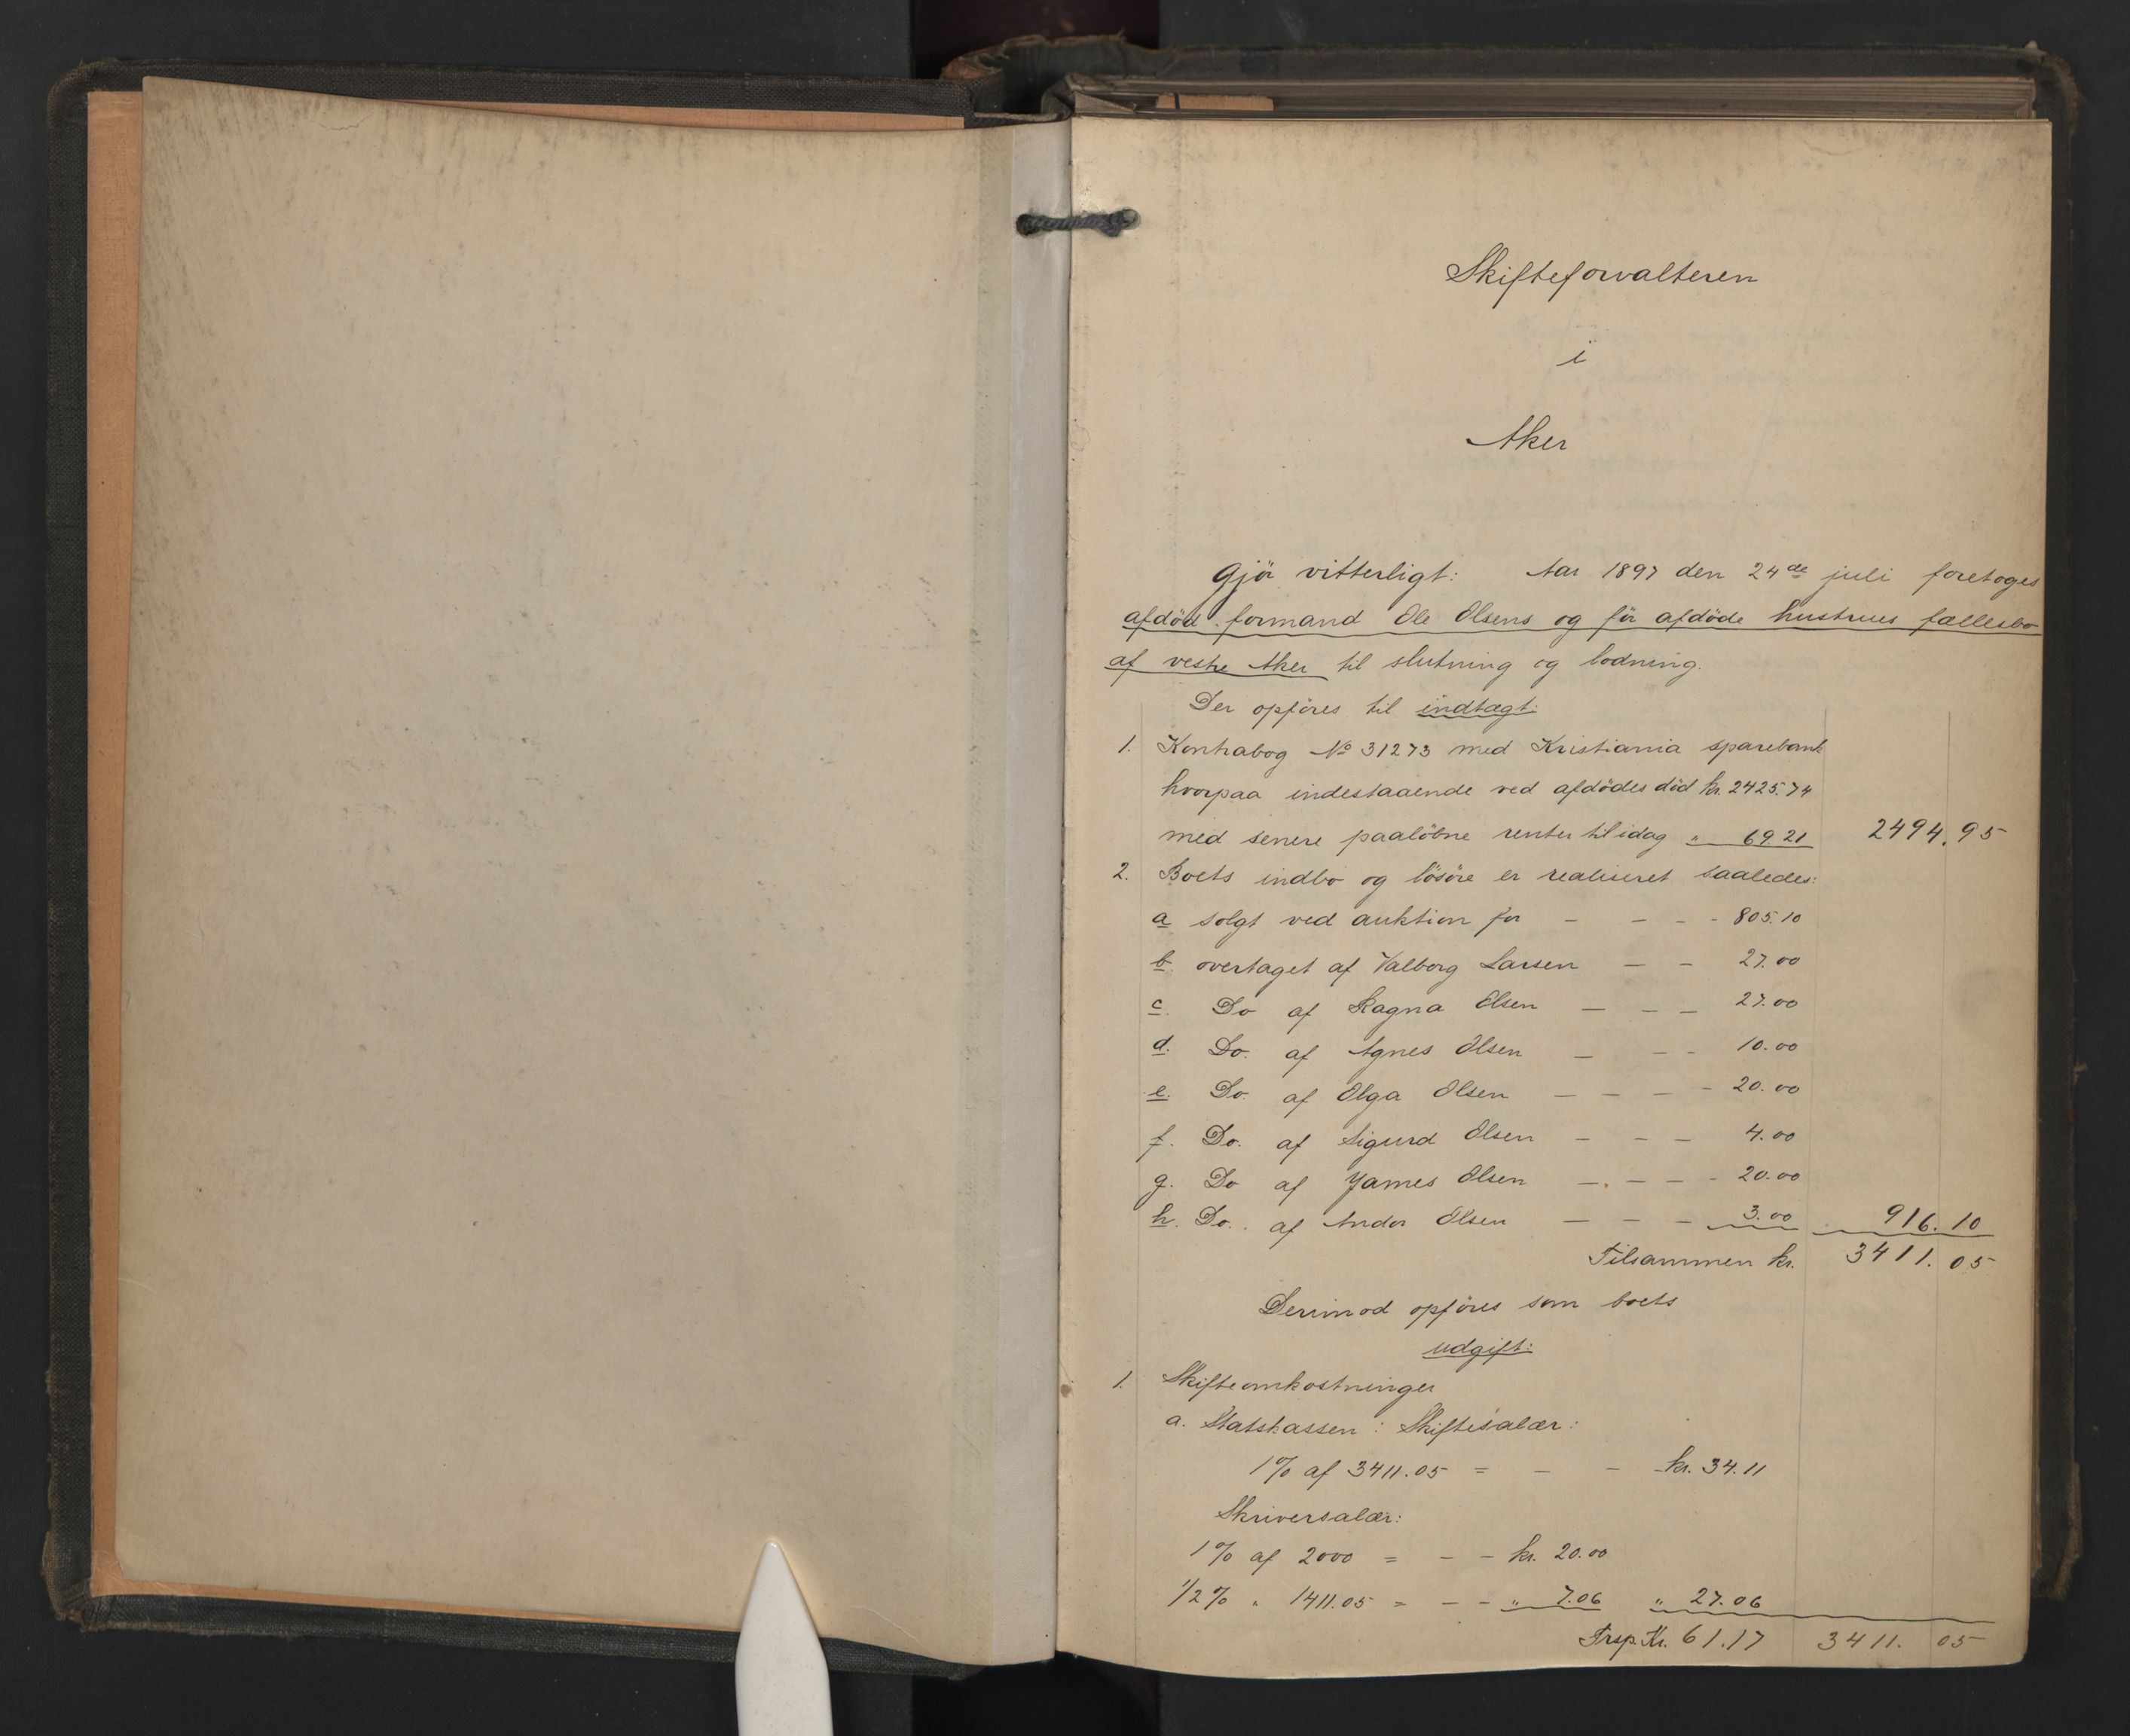 Skifteforvalteren
i
Aker
Gjör vitterligt: Aar 1897 den 24de juli foretoges
afdöd formand Ole Olsens og för afdöde hustrues fællesbo
af vestre Aker til slutning og lodning.
Der opföres til indtægt:
1. Kontrabog No 31273 med Kristiania sparebank
hvorpaa indestaaende ved afdödes död kr. 2425.74
med senere paalöbne renter til idag " 69.21 2494.95
2. Boets indbo og lösöre er realiseret saaledes:
a solgt ved auktion for - - - - 805.10
b. overtaget af Valborg Larsen - - 27.00
c. Do af Ragna Olsen - - - 27.00
d. Do. af Agnes Olsen - - - 10.00
e. Do. af Olga Olsen - - - - 20.00
f. Do. af Sigurd Olsen - - - 4.00
g. Do af James Olsen - - - - 20.00
h. Do. af Andor Olsen - - - 3.00 916.10
Tilsammen kr. 3411.05
Derimod opföres som boets
udgift:
1. Skifteomkostninger
a. Statskassen: Skiftesalær:
1% af 3411.05 = - - kr. 34.11
Skriversalær:
1% af 2000 = - - kr. 20.00
1/2% " 1411.05 = - - " 7.06 " 27.06
Trsp. Kr. 61.17 3411.05